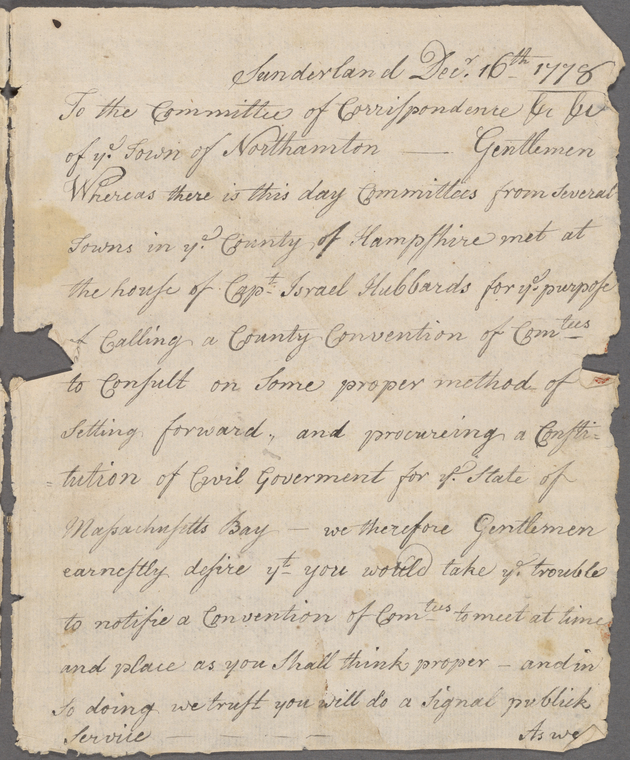 Sunderland Decr. 16th 1778
To the Committee of Corrispondence &c &c
of ye. Town of Northamton — Gentlemen
Whereas there is this day Committees from Several
Towns in ye. County of Hampshire met at
the house of Capt. Israel Hubbards for ye. purpose
of Calling a County Convention of Comtees
to Consult on Some proper method of
Setting forward, and procureing a Consti=
=tution of Civil Goverment for ye. State of
Massachusetts Bay — we therefore Gentlemen
earnestly desire yt you would take ye. trouble
to notifie a Convention of Comtees to meet at time
and place as you Shall think proper — and in
So doing we trust you will do a Signal publick
Service — — — — As we